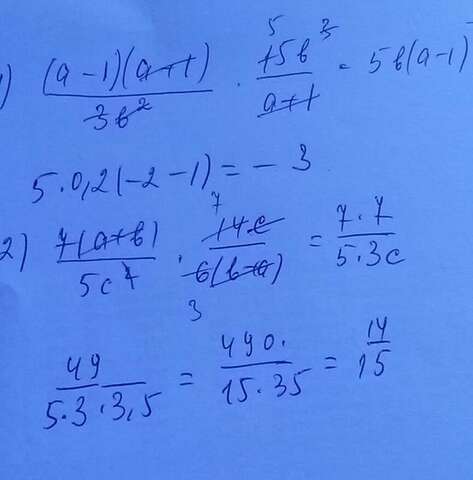 1) (a-1)(a+1)/3b² · 15b³/a+1 = 5b(a-1)
5
5·0,2(-2-1) = -3
2) 7(a+b)/5c² · 14c/6(b+a) = 7·7/5·3c
7
3
49/5·3·3,5 = 490·/15·35 = 14/15